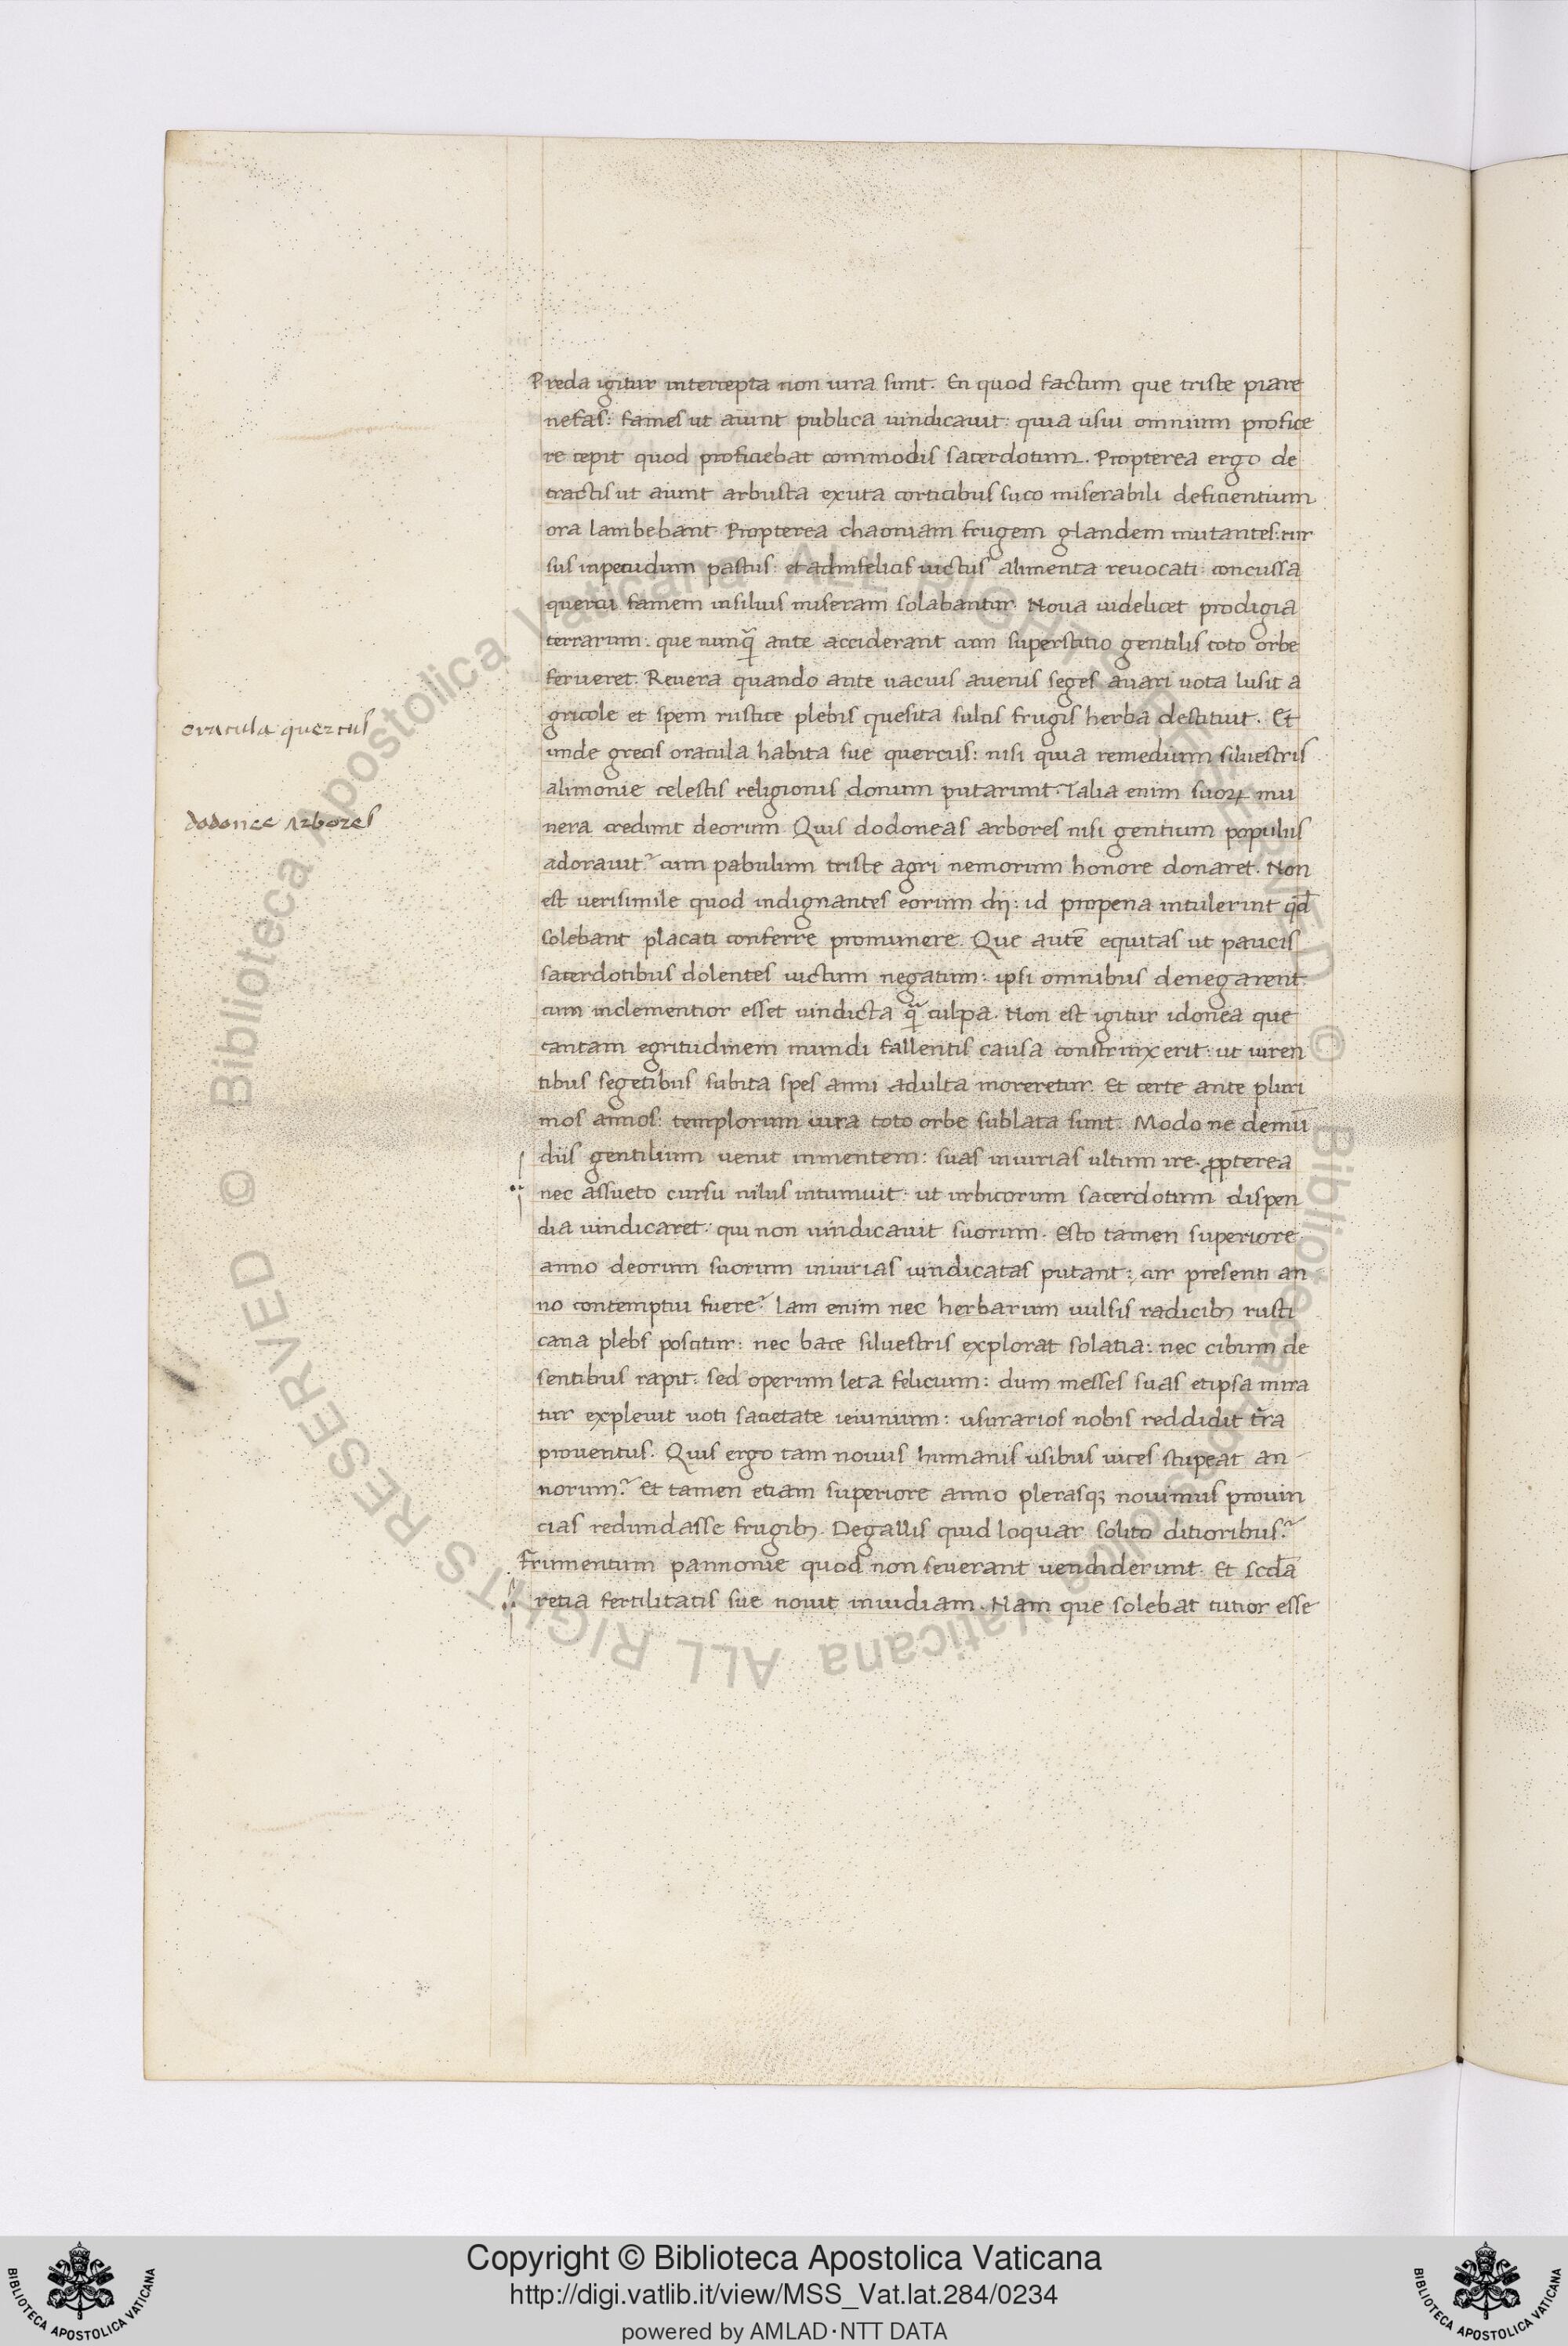 Preda igitur intercepta non iura sunt. En quod factum que triste piare
nefas: fames ut aiunt publica uindicauit: quia usui omnium profice
re cepit quod proficiebat commodis sacerdotum. Propterea ergo de
tractis ut aiunt arbusta exuta corticibus suco miserabili deficientium
ora lambebant. Propterea chaoniam frugem glandem mutantes: rur
sus inpecudum pastus: et adinfelicis uictus alimenta reuocati: concussa
quercu famem insiluis miseram solabantur. Noua uidelicet prodigia
terrarum: que nunq̃ ante acciderant cum superstitio gentilis toto orbe
ferueret. Reuera quando ante uacuis auenis seges auari uota lusit a
gricole et spem rustice plebis quesita sulcis frugis herba destituit. Et
oracula quercus
unde grecis oracula habita sue quercus: nisi quia remedium siluestris
alimonie celestis religionis donum putarunt. Talia enim suoꝝ mu
dodonee arbores
nera credunt deorum. Quis dodoneas arbores nisi gentium populus
adorauit? cum pabulum triste agri nemorum honore donaret. Non
est uerisimile quod indignantes eorum dij: id propena intulerint qd̄
solebant placati conferre promunere. Que autē equitas ut paucis
sacerdotibus dolentes uictum negatum: ipsi omnibus denegarent
cum inclementior esset uindicta q̃ culpa. Non est igitur idonea que
tantam egritudinem mundi fallentis causa constrinxerit: ut uiren
tibus segetibus subita spes anni adulta moreretur. Et certe ante pluri
mos annos: templorum iura toto orbe sublata sunt. Modo ne demū
diis gentilium uenit inmentem: suas iniurias ultum ire. ꝓpterea
nec assueto cursu nilus intumuit: ut urbicorum sacerdotum dispen
dia uindicaret: qui non uindicauit suorum. Esto tamen superiore
anno deorum suorum iniurias uindicatas putant: cur presenti an
no contemptui fuere? Iam enim nec herbarum uulsis radicibꝫ rusti
cana plebs poscitur: nec bace siluestris explorat solatia: nec cibum de
sentibus rapit: sed operum leta felicium: dum messes suas etipsa mira
tur expleuit uoti satietate ieiunium: usurarios nobis reddidit t̄ra
prouentus. Quis ergo tam nouus humanis usibus uices stupeat an
norum? Et tamen etiam superiore anno plerasqꝫ nouimus prouin
cias redundasse frugibꝫ. Degallis quid loquar solito ditioribus?
Frumentum pannonie quod non seuerant uendiderunt. Et scd̄a
retia fertilitatis sue nouit inuidiam. Nam que solebat tutior esse
Copyright © Biblioteca Apostolica Vaticana
http://digi.vatlib.it/view/MSS_Vat.lat.284/0234
powered by AMLAD·NTT DATA
BIBLIOTECA APOSTOLICA VATICANA
BIBLIOTECA APOSTOLICA VATICANA
© Biblioteca Apostolica Vaticana ALL RIGHTS RESERVED
© Biblioteca Apostolica Vaticana ALL RIGHTS RESERVED